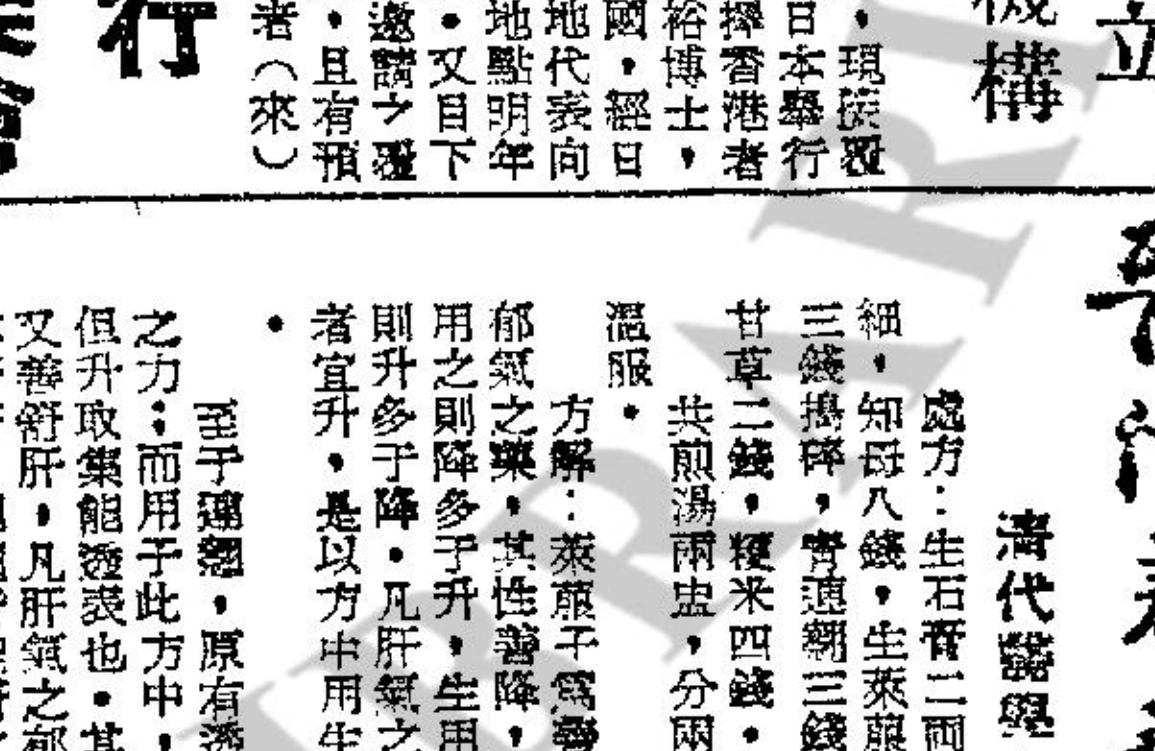 立
機構
現該覆
日本舉行
擇香港者
裕博士，
國，經日
地代表向
地點明年
．又目下
邀請之覆
．且有預
者（來）
行
清代醫學
處方：生石膏二両
細，知母八錢，生萊菔
三錢搗碎，青連翹三錢
甘草二錢，粳米四錢．
共煎湯兩盅，分兩
溫服．
方解：萊菔子為
郁氣之藥，其性善降，
用之則降多于升，生用
則升多于降．凡肝氣之
者宜升．是以方中用生
．
至于連翹，原有透
之力；而用于此方中，
但升取集能透表也．其
又善舒肝，凡肝氣之郁